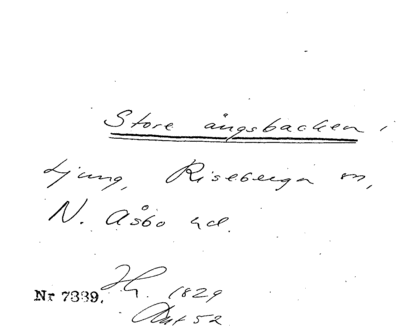 Store ängsbacken,
Ljung, Riseberga sn,
N. Åsbo hd.
Nr 7339. H. 1829
Akt 52